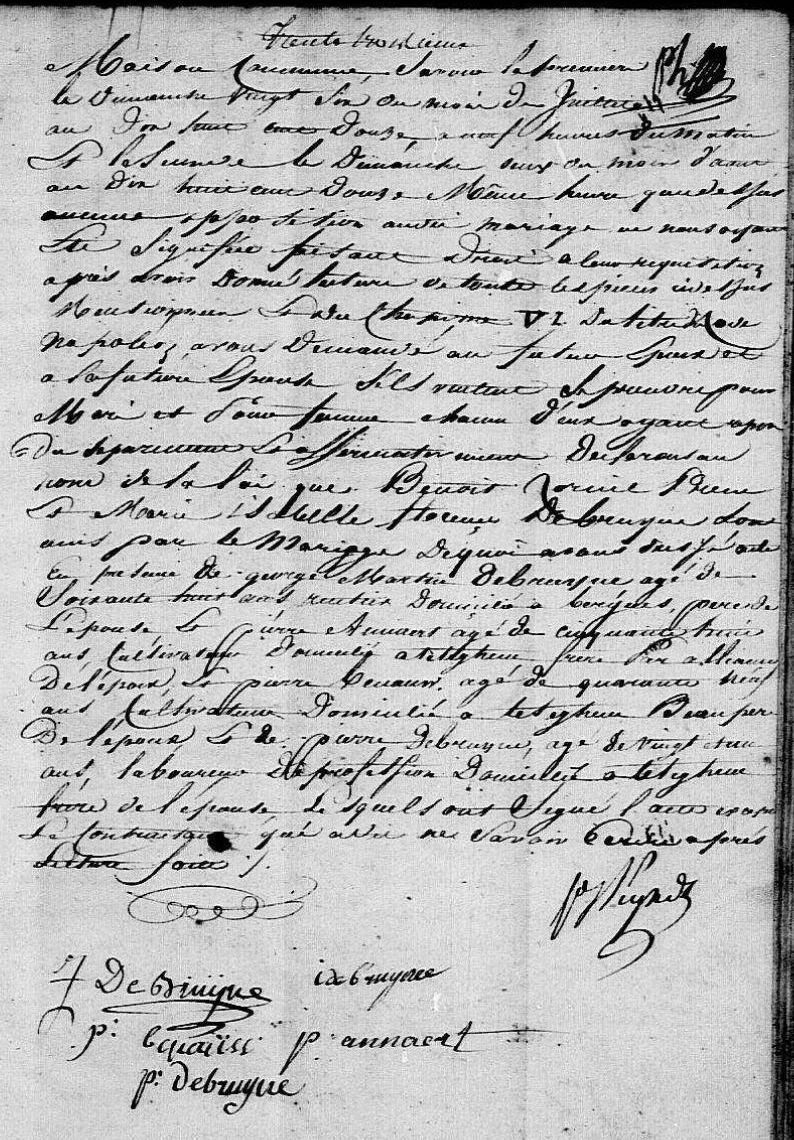 trente troisieme
Maison Commune, Savoir la premiere
le Dimanche vingt Six du mois de Juillet
an Dix huit cent Douze a neuf heures du matin
Et la Seconde le Dimanche deux du mois d'aout
an Dix huit cent Douze Même heure que dessus
aucune opposition audit mariage ne nous ayant
Eté Signifiée faisant Droit a leur requisition
après avoir Donné lecture de toute les pieces cidessus
Mentionnées Et du Chapitre VI du titre du Code
Napoleon, avons Demandé au futur Epoux et
a la future Epouse s'ils veulent Se prendre pour
Mari et pour femme chacun d'eux ayant repon
du separement Et affirmativement Declarons au
nom de la loi que Benoit
Et Marie isabelle florence Debruyne Sont
unis par le Mariage De quoi avons dressé acte
En presence de george Martin Debruyne agé de
Soixante huit ans rentier Domicilié a bergues, pere de
L'epouse Et pierre Annaert agé de cinquante trois
ans Cultivateur Domicilié a teteghem frere Par alliance
De l'époux, Et pierre agé de quarante neuf
ans Cultivateur Domicilié a teteghem Beau pere
De l'époux Et de pierre Debruyne, agé de vingt et un
ans, laboureur De profession Domicilié a teteghem
frere de l'epouse Lesquels ont Signé l'acte
Le Contractant qui a dit ne Savoir Ecrire après
Lecture faite ./.
J DeBruijne i debruyne
p: p: annaert
p: debruyne